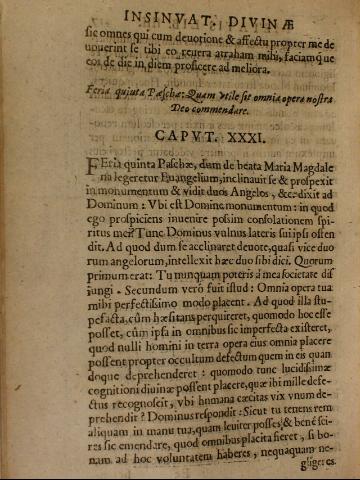 INSINVAT. DIVINÆ
sic omnes qui cum deuotione & affectu propter me de
uouerint se tibi eo reuera atraham mihi, faciamque
eos de die in diem proficere ad meliora.
Feria quinta Paschæ: Quam vtile sit omnia opera nostra
Deo commendare.
CAPVT. XXXI.
FEria quinta Paschæ, dum de beata Maria Magdale
na legeretur Euangelium, inclinauit se & prospexit
in monumentum & vidit duos Angelos, &c. dixit ad
Dominum: Vbi est Domine monumentum: in quod
ego prospiciens inuenire possim consolationem spi-
ritus mei? Tunc Dominus vulnus lateris sui ipsi osten
dit. Ad quod dum se acclinaret deuote, quasi vice duo
rum angelorum, intellexit hæc duo sibi dici. Quorum
primum erat: Tu nunquam poteris à mea societate dis
iungi. Secundum verò fuit istud: Omnia opera tua
mihi perfectissimo modo placent. Ad quod illa stu-
pefacta, cùm hæsitans perquireret, quomodo hoc esse
posset, cùm ipsa in omnibus sic imperfecta existeret,
quod nulli homini in terra opera eius omnia placere
possent propter occultum defectum quem in eis quan
doque deprehenderet: quomodo tunc lucidissimæ
cognitioni diuinæ possent placere, quæ ibi mille defe-
ctus recognoscit, vbi humana cæcitas vix vnum de-
prehendit? Dominus respondit: Sicut tu tenens rem
aliquam in manu tua, quam leuiter posses & benè sci-
res sic emendare, quod omnibus placita fieret, si bo-
nam ad hoc voluntatem haberes, nequaquam ne-
gligeres.